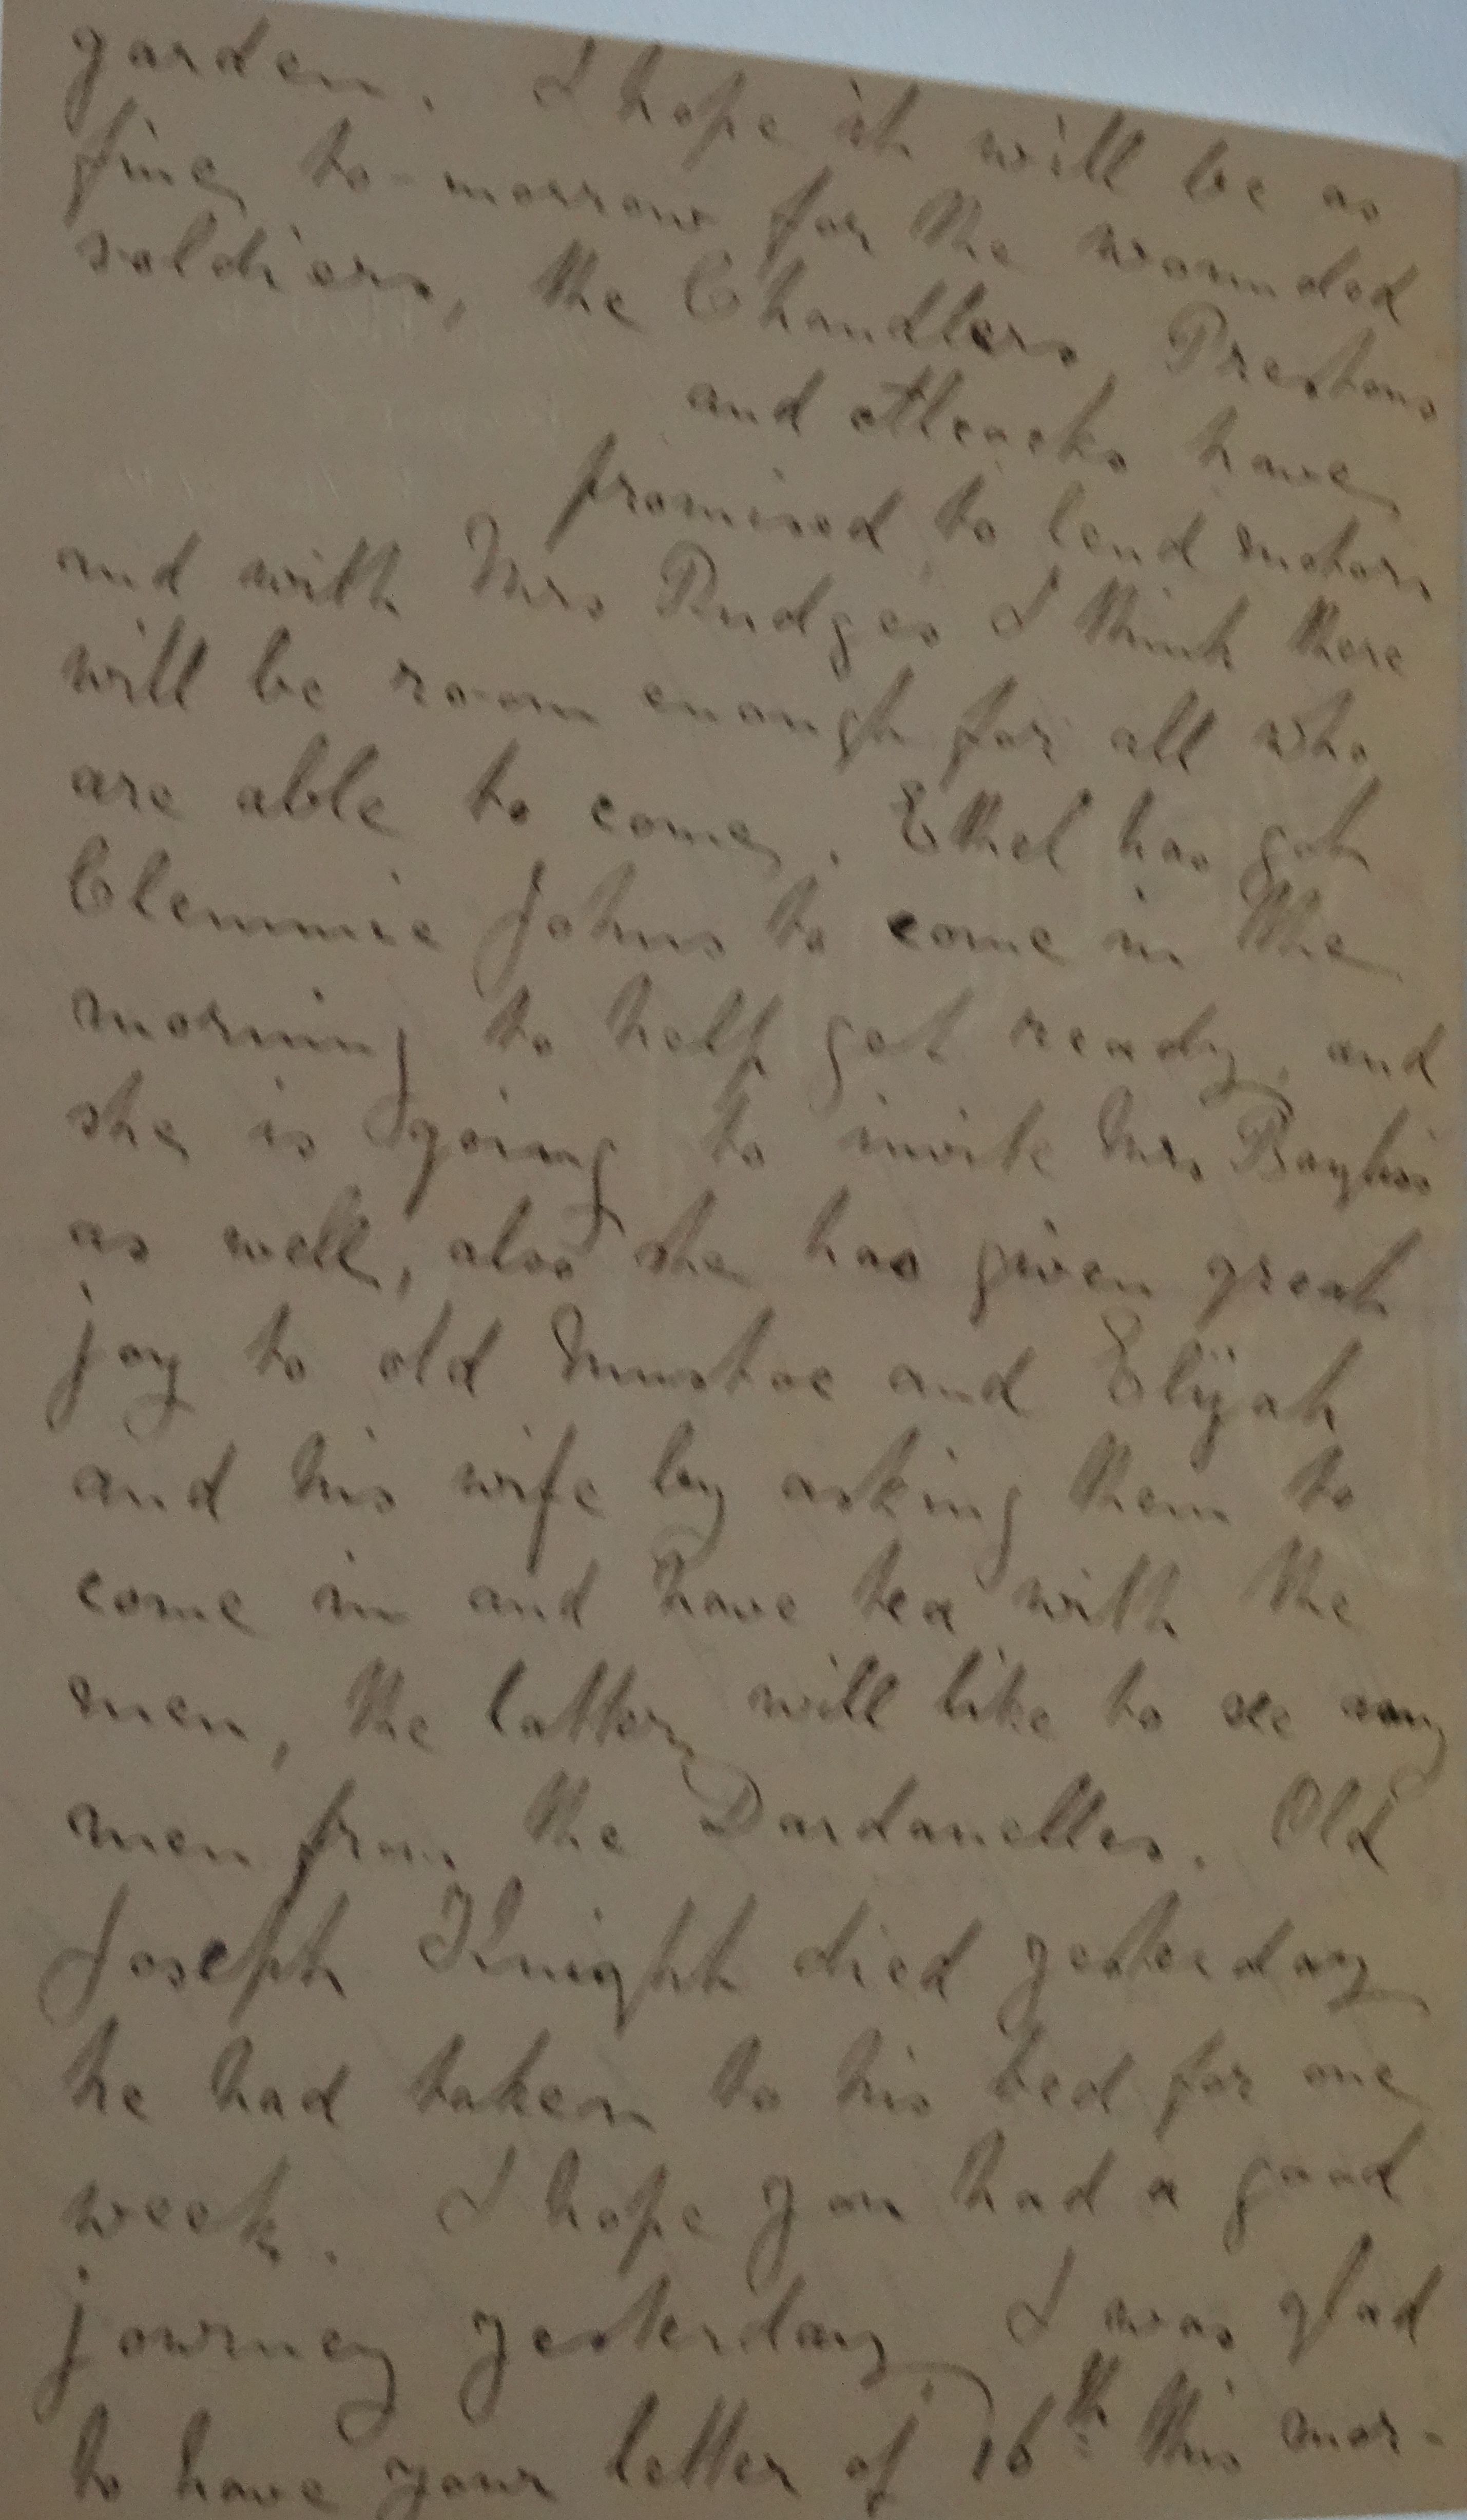 garden. I hope it will be as
fine to-morrow for the wounded
soldiers, the Chandlers Prestons
and have
promised to lend motors
and with Mrs Rudges I think there
will be room enough for all who
are able to come. Ethel has got
Clemmie Johns to come in the
morning to help get ready, and
she is going to invite Mrs Bayliss
as well, also she has given great
joy to old Mustoe and Elijah
and his wife by asking them to
come in and have tea with the
men, the latter will like to see any
men from the Dardanelles. Old
Joseph Knight died yesterday
he had taken to his bed for one
week. I hope you had a good
journey yesterday. I was glad
to have your letter of 16th this mor-